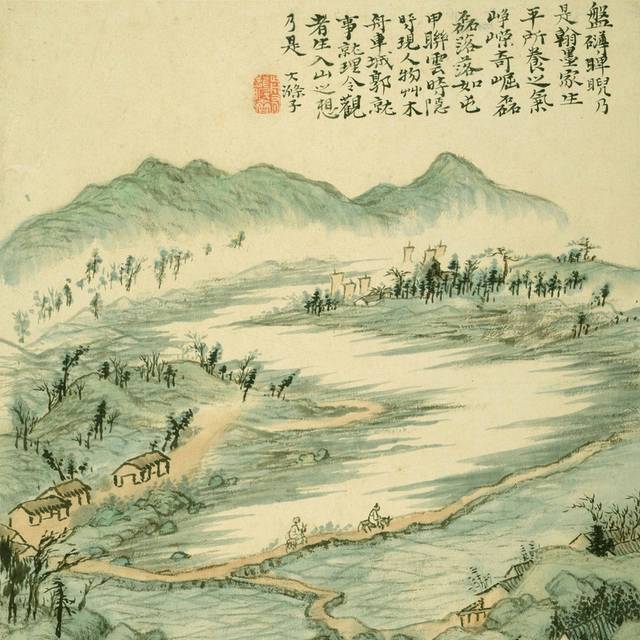 盤礴睥睨乃
是翰墨家生
平所養之氣
崢嶸奇崛磊
磊落落如屯
甲聯雲時隱
時現人物艸木
舟車城郭就
事就理令觀
者生入山之想
乃是 大滌子